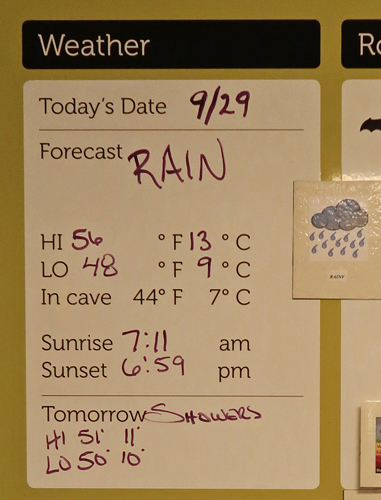 Weather
Today's Date 9/29
Forecast RAIN
HI 56 °F 13 °C
LO 48 °F 9 °C
In cave 44°F 7°C
Sunrise 7:11 am
Sunset 6:59 pm
Tomorrow SHOWERS
HI 51° 11°
LO 50° 10°
Ro
RAINY